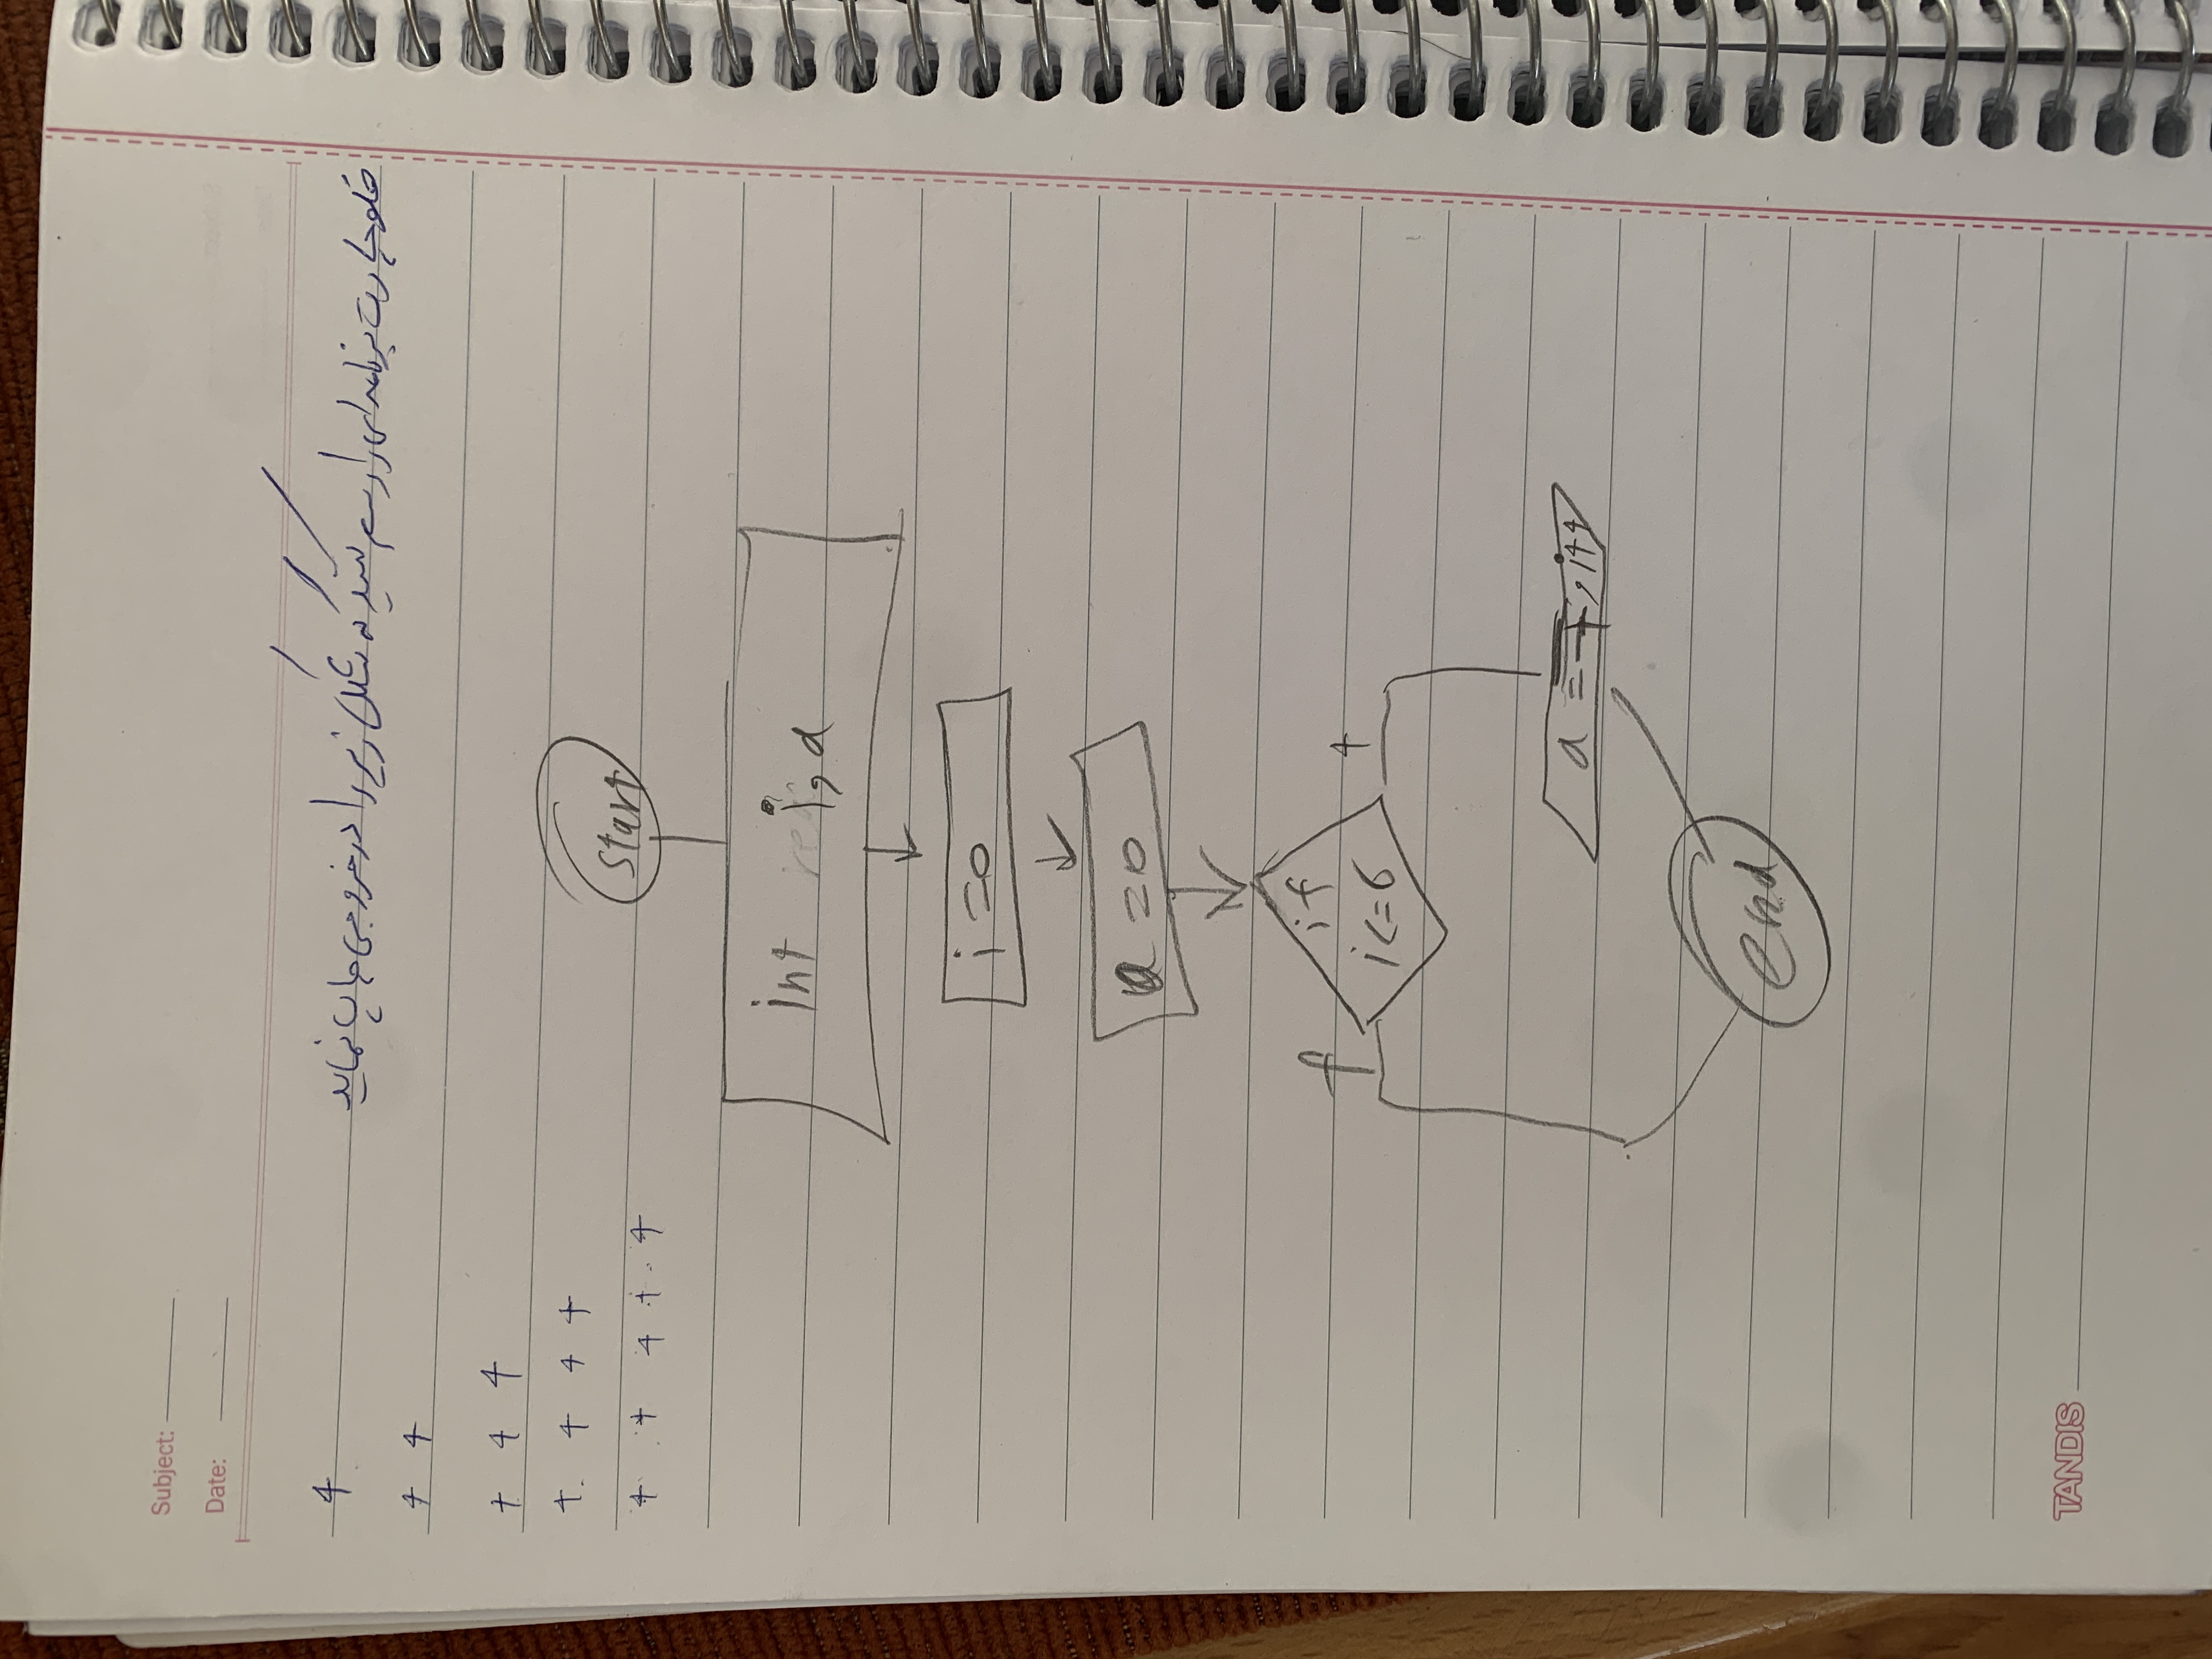 Subject:
Date:
فلوچارت برنامه ای را رسم کنید که شکل زیر را در خروجی چاپ نماید
+
+ +
+ + +
+ + + +
+ + + + +
start
int i, a
i = 0
a = 0
if
i <= 6
f
t
a = +, i++
end
TANDIS